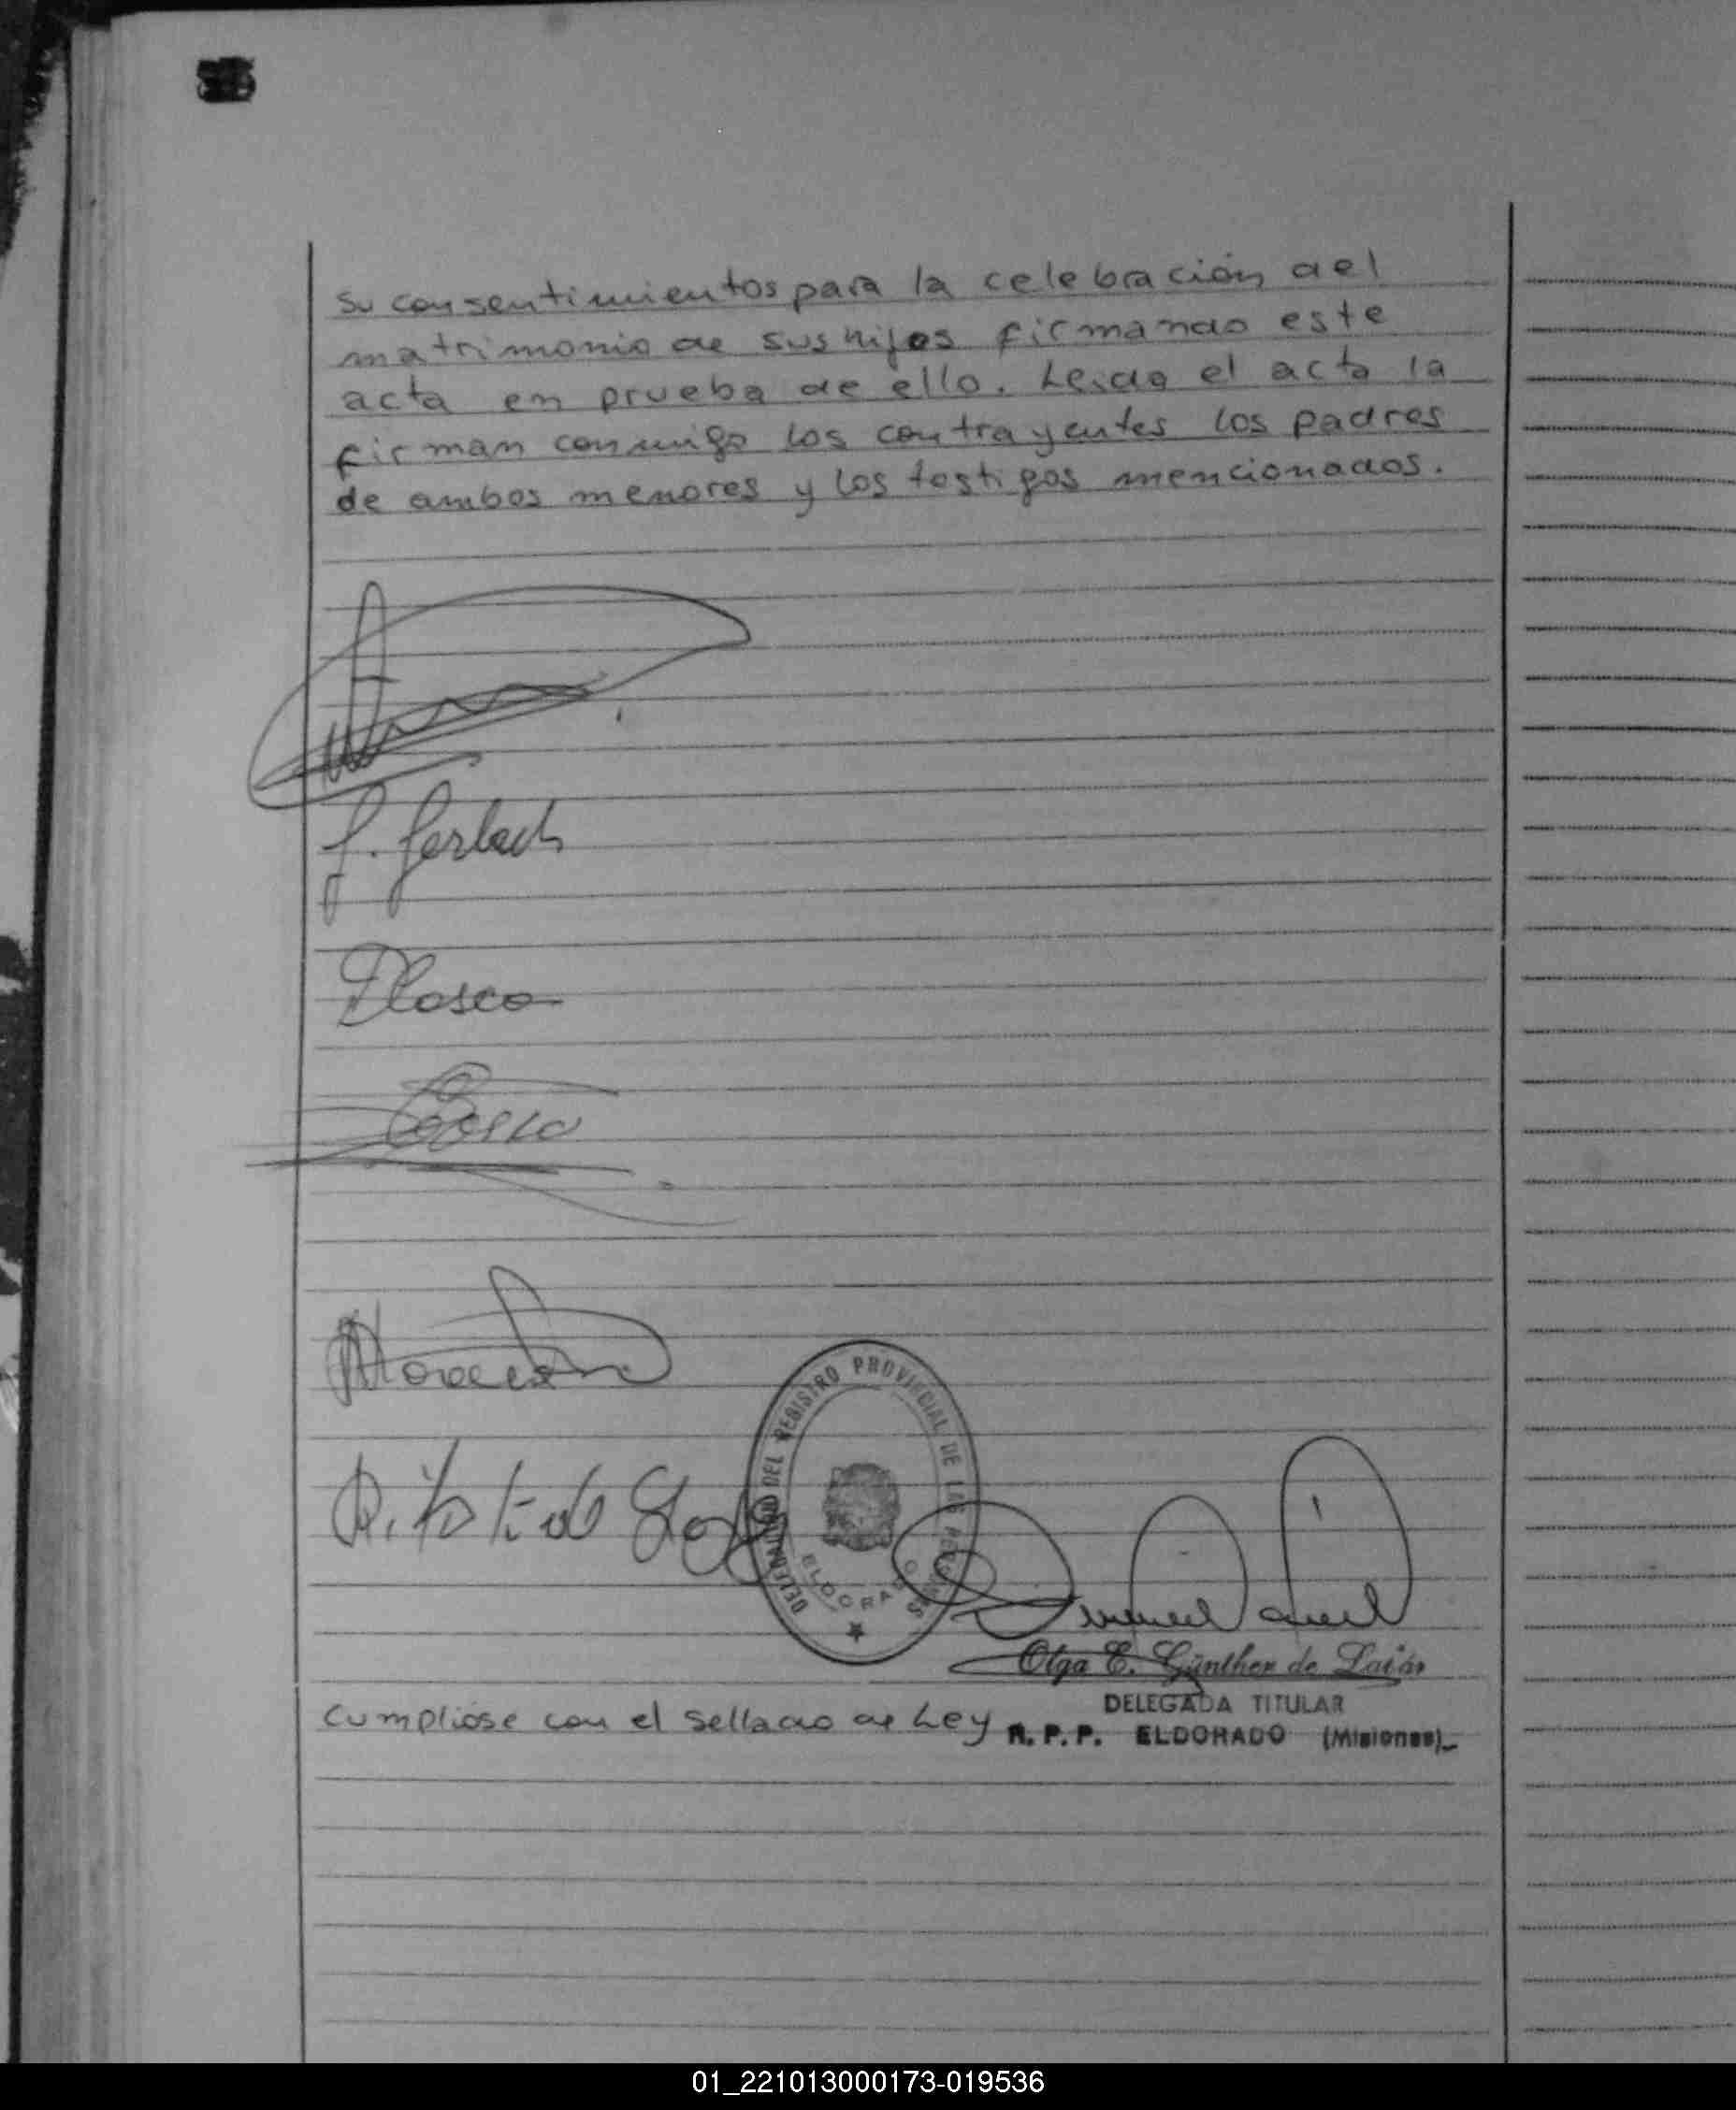 su consentimientos para la celebración del
matrimonio de sus hijos firmando este
acta en prueba de ello. Leida el acta la
firman conmigo los contrayentes los padres
de ambos menores y los testigos mencionados.
J. Gerlach
DELEGACION DEL REGISTRO PROVINCIAL DE LAS PERSONAS
ELDORADO
Olga E. Günther de
DELEGADA TITULAR
Cumpliose con el sellado de Ley R. P. P. ELDORADO (Misiones)
01_221013000173-019536